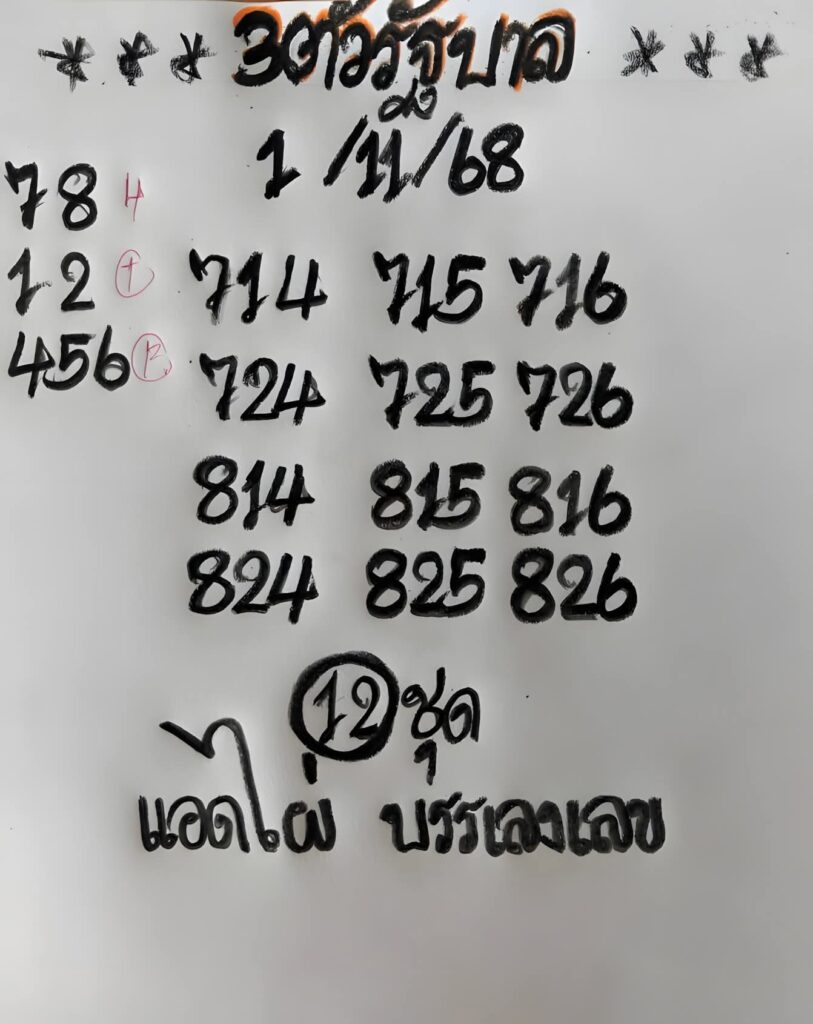 3ตัวรัฐบาล
1/11/68
78
12
456
714 715 716
724 725 726
814 815 816
824 825 826
12 ชุด
แอ๊ดไผ่ บรรเลงเลข